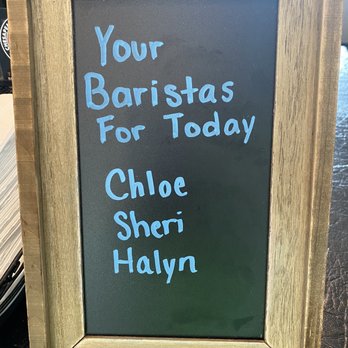 Your
Baristas
For Today
Chloe
Sheri
Halyn